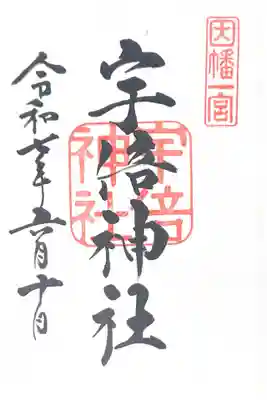 因幡一宮
宇倍神社
宇倍神社
令和七年六月十日